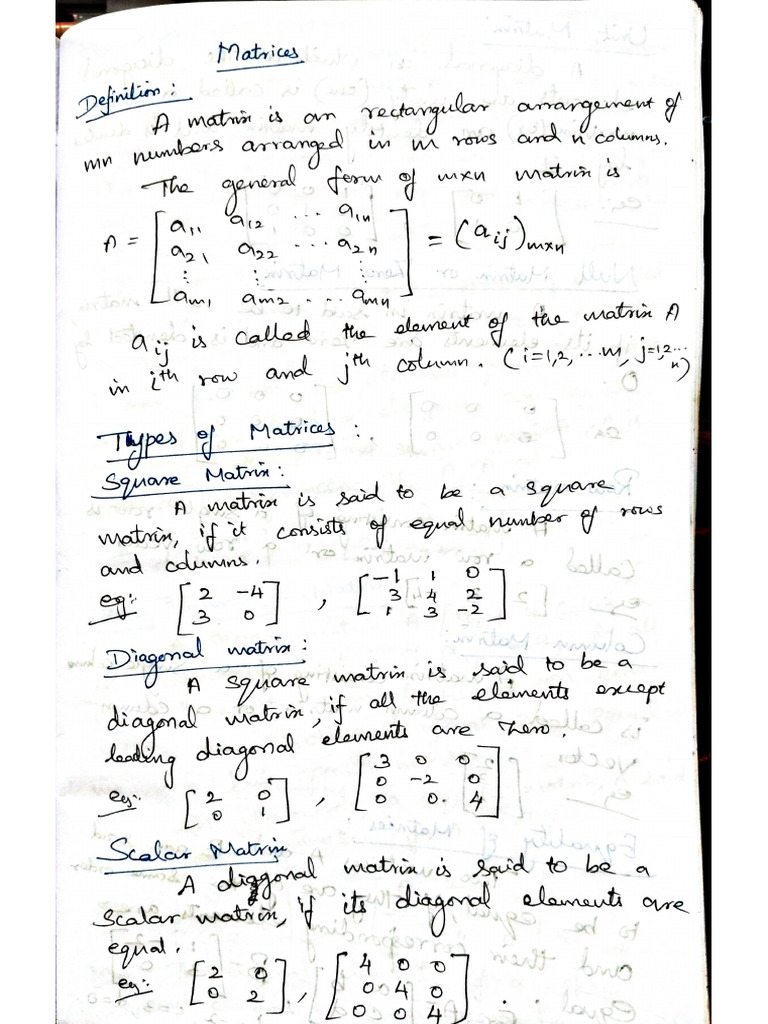 Matrices
Definition:
A matrix is an rectangular arrangement of
mn numbers arranged in m rows and n columns.
The general form of mxn matrix is
A = [ a11 a12 ... a1n
a21 a22 ... a2n
⋮ ⋮ ⋮
am1 am2 ... amn ] = (aij)mxn
aij is called the element of the matrix A
in ith row and jth column. (i=1,2, ...m, j=1,2...n)
Types of Matrices:
Square Matrix:
A matrix is said to be a square
matrix, if it consists of equal number of rows
and columns.
eg:- [ 2 -4 ] , [ -1 1 0 ]
[ 3 0 ] [ 3 4 2 ]
[ 1 3 -2 ]
Diagonal matrix:
A square matrix is said to be a
diagonal matrix, if all the elements except
leading diagonal elements are zero.
eg:- [ 2 0 ] , [ 3 0 0 ]
[ 0 1 ] [ 0 -2 0 ]
[ 0 0 4 ]
Scalar Matrix
A diagonal matrix is said to be a
scalar matrix, if its diagonal elements are
equal.
eg:- [ 2 0 ] , [ 4 0 0 ]
[ 0 2 ] [ 0 4 0 ]
[ 0 0 4 ] .